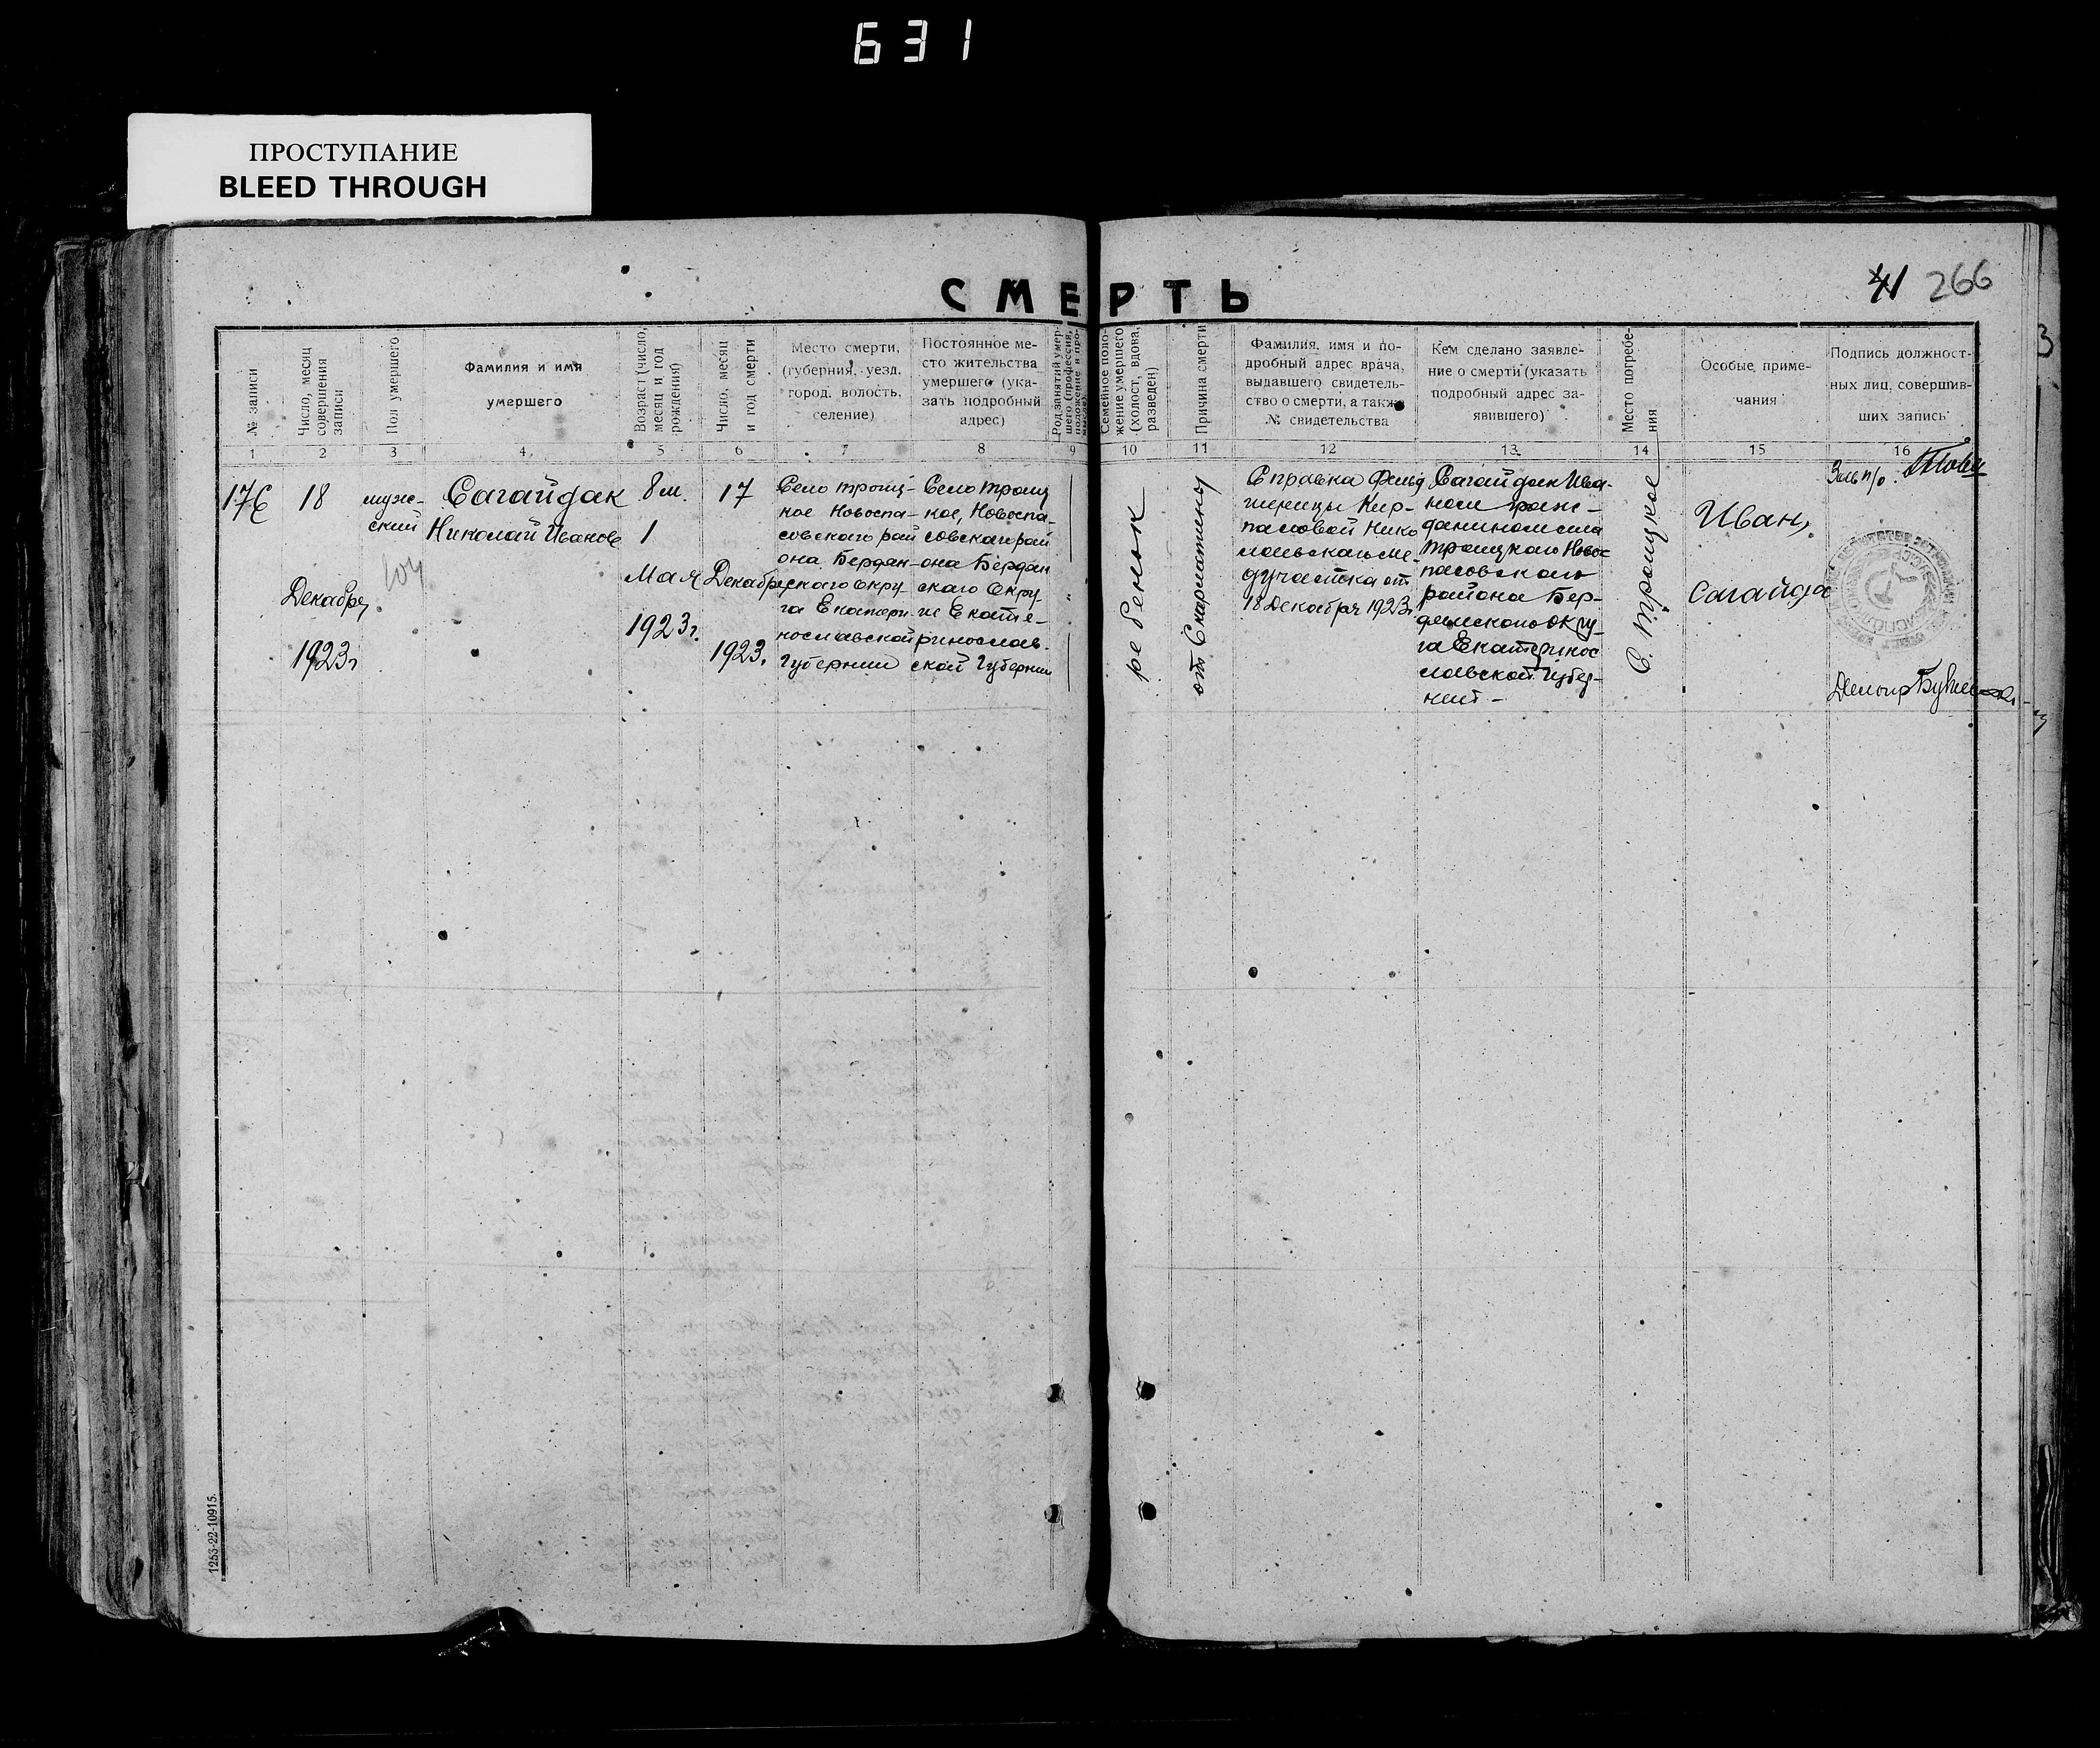 631
ПРОСТУПАНИЕ
BLEED THROUGH
СМЕРТЬ
41 266
№ записи
Число, месяц
совершения
записи
Пол умершего
Фамилия и имя
умершего
Возраст (число,
месяц и год
рождения)
Число, месяц
и год смерти
Место смерти,
(губерния, уезд,
город, волость,
селение)
Постоянное ме-
сто жительства
умершего (ука-
зать подробный
адрес)
Род занятий умер-
шего (профессия,
положение в про-
мысле)
Семейное поло-
жение умершего
(холост, вдова,
разведен)
Причина смерти
Фамилия, имя и по-
дробный адрес врача,
выдавшего свидетель-
ство о смерти, а также
№ свидетельства
Кем сделано заявле-
ние о смерти (указать
подробный адрес за-
явившего)
Место погребе-
ния
Особые приме-
чания
Подпись должност-
ных лиц, совершив-
ших запись
1 2 3 4 5 6 7 8 9 10 11 12 13 14 15 16
176
18
Декабря
1923г
муж-
ский
Сагайдак
Николай Иванов
8 м.
1
Мая
1923г.
17
Декабря
1923.
Село Троиц-
кое Новоспа-
совского рай
она, Бердян-
ского Окру-
га Екатери-
нославской
Губернии
Село Троиц
кое, Новоспа-
совскаго рай
она Бердян
скаго Окру-
га Екате-
ринослав-
ской Губернии
ребенок
от Скарлатины
Справка Фельд
шерицы Кир-
пасовой Нико
лаьскаго ме-
дучастка от
18 Декабря 1923г.
Сагайдак Ива-
ном граж-
данином села
Троицкаго Новос
пасовскаго
района Бер-
дянского Окру-
га Екатеринос
лавской Губер-
нии -
С. Троицкое
Иван,
Сагайда